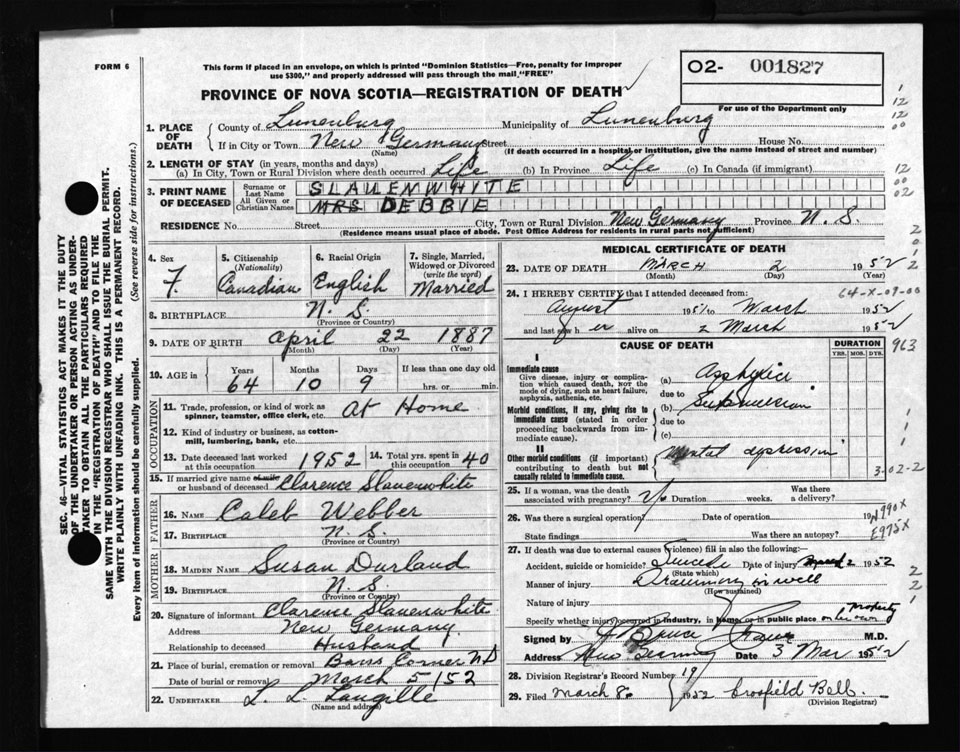 FORM 6
This form if placed in an envelope, on which is printed "Dominion Statistics—Free, penalty for improper
use $300," and properly addressed will pass through the mail "FREE"
PROVINCE OF NOVA SCOTIA—REGISTRATION OF DEATH
O2- 001827
For use of the Department only
1. PLACE OF DEATH
County of Lunenburg Municipality of Lunenburg
If in City or Town New Germany Street House No.
(Name) (If death occurred in a hospital or institution, give the name instead of street and number)
2. LENGTH OF STAY (in years, months and days)
(a) In City, Town or Rural Division where death occurred Life (b) In Province Life (c) In Canada (if immigrant)
3. PRINT NAME OF DECEASED
Surname or Last Name SLAUENWHITE
All Given or Christian Names MRS DEBBIE
RESIDENCE No. Street City, Town or Rural Division New Germany Province N. S.
(Residence means usual place of abode. Post Office Address for residents in rural parts not sufficient)
4. Sex F.
5. Citizenship (Nationality) Canadian
6. Racial Origin English
7. Single, Married, Widowed or Divorced (write the word) Married
8. BIRTHPLACE N. S.
(Province or Country)
9. DATE OF BIRTH April 22 1887
(Month) (Day) (Year)
10. AGE in Years Months Days If less than one day old
64 10 9 hrs. or min.
OCCUPATION
11. Trade, profession, or kind of work as spinner, teamster, office clerk, etc. At Home
12. Kind of industry or business, as cotton-mill, lumbering, bank, etc.
13. Date deceased last worked at this occupation 1952 14. Total yrs. spent in this occupation 40
15. If married give name of wife or husband of deceased Clarence Slauenwhite
FATHER
16. NAME Caleb Webber
17. BIRTHPLACE N. S.
(Province or Country)
MOTHER
18. MAIDEN NAME Susan Durland
19. BIRTHPLACE N. S.
(Province or Country)
20. Signature of informant Clarence Slauenwhite
Address New Germany
Relationship to deceased Husband
21. Place of burial, cremation or removal Barss Corner N S
Date of burial or removal March 5/52
22. UNDERTAKER L. L. Langille
(Name and address)
MEDICAL CERTIFICATE OF DEATH
23. DATE OF DEATH MARCH 2 1952
(Month) (Day) (Year)
24. I HEREBY CERTIFY that I attended deceased from: 64-X-09-00
August 1951 to March 1952
and last saw her alive on 2 March 1952
CAUSE OF DEATH
DURATION
YRS. MOS. DYS.
963
I
Immediate cause
Give disease, injury or complication which caused death, not the mode of dying, such as heart failure, asphyxia, asthenia, etc.
(a) Asphyxia
due to
Morbid conditions, if any, giving rise to immediate cause (stated in order proceeding backwards from immediate cause).
(b) Submersion
due to
(c)
II
Other morbid conditions (if important) contributing to death but not causally related to immediate cause.
Mental depression
3-02-2
25. If a woman, was the death associated with pregnancy? Duration weeks. Was there a delivery?
26. Was there a surgical operation? Date of operation 19
N990X
State findings Was there an autopsy?
E975X
27. If death was due to external causes (violence) fill in also the following:—
Accident, suicide or homicide? Suicide Date of injury March 2 1952
(State which)
Manner of injury Drowning in well
(How sustained)
Nature of injury
Specify whether injury occurred in industry, in home or in public place on her own property
Signed by J Bruce M.D.
Address New Germany Date 3 Mar 1952
28. Division Registrar's Record Number 19
29. Filed March 8 1952 Crosfield Bolb.
(Division Registrar)
SEC. 46—VITAL STATISTICS ACT MAKES IT THE DUTY
OF THE UNDERTAKER OR PERSON ACTING AS UNDER-
TAKER TO OBTAIN ALL THE PARTICULARS REQUIRED
IN THE "REGISTRATION OF DEATH" AND TO FILE THE
SAME WITH THE DIVISION REGISTRAR WHO SHALL ISSUE THE BURIAL PERMIT.
WRITE PLAINLY WITH UNFADING INK. THIS IS A PERMANENT RECORD.
Every item of information should be carefully supplied.
(See reverse side for instructions.)